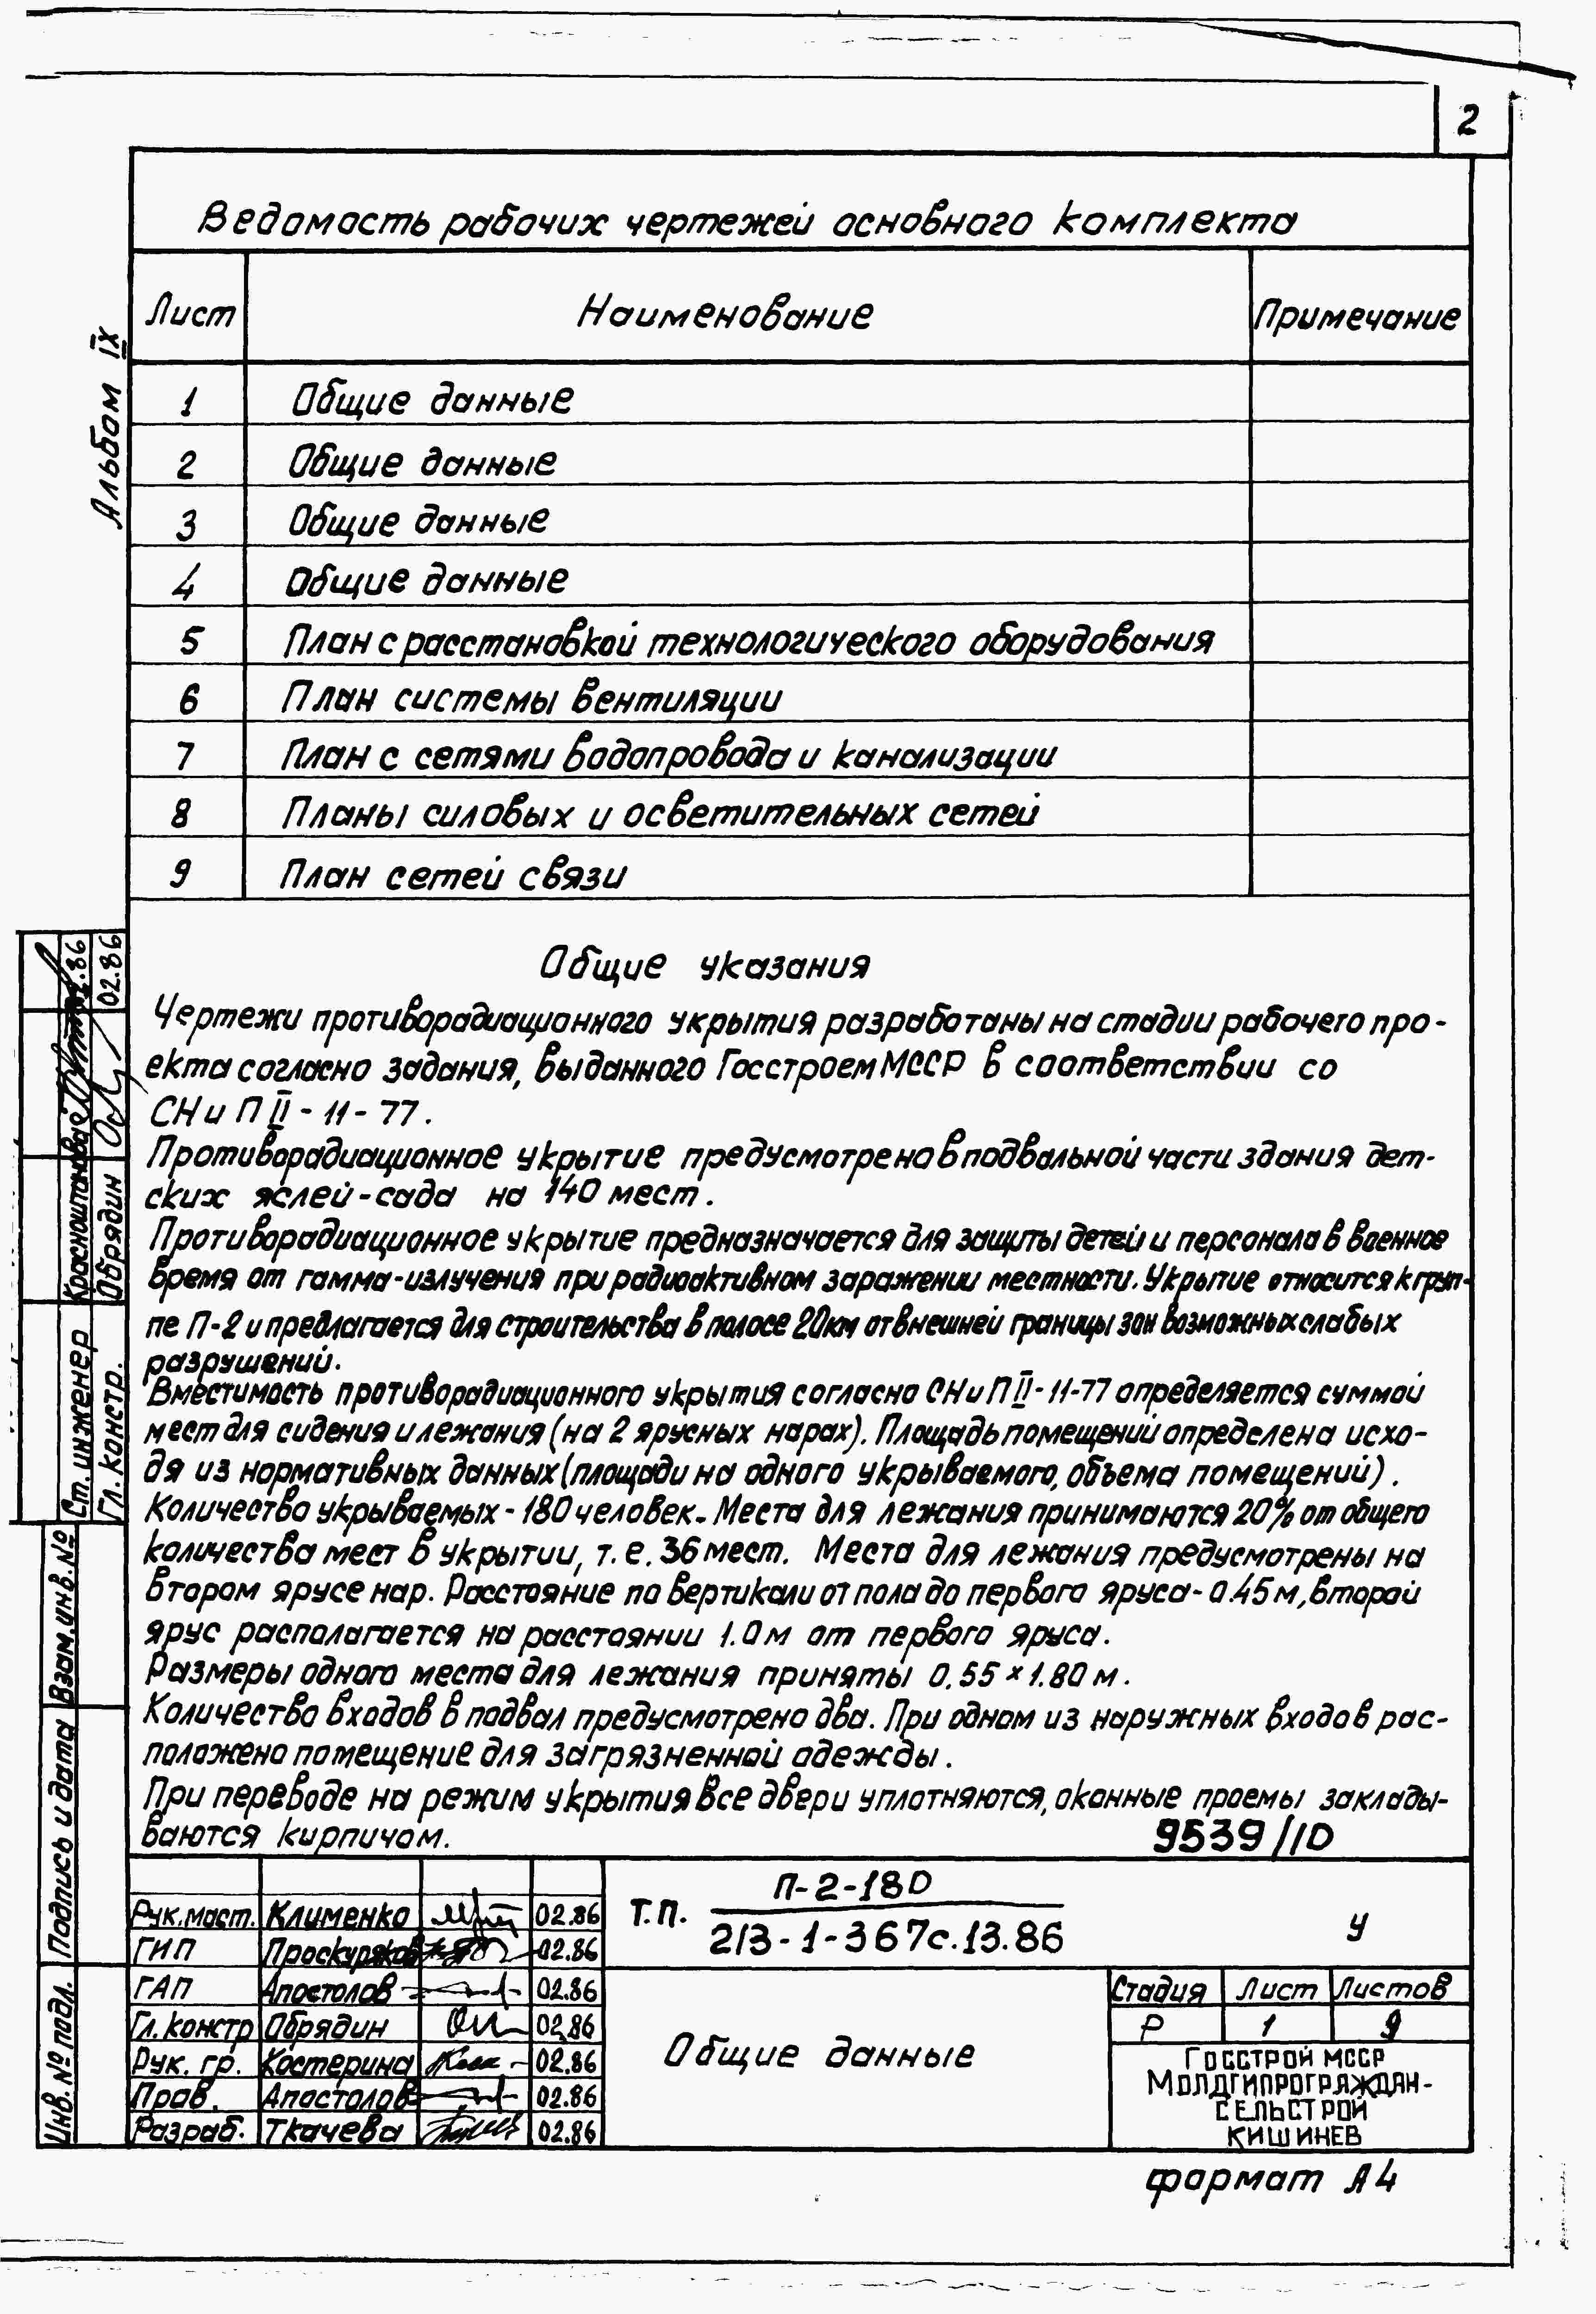 2
Ведомость рабочих чертежей основного комплекта
Лист Наименование Примечание
1 Общие данные
2 Общие данные
3 Общие данные
4 Общие данные
5 План с расстановкой технологического оборудования
6 План системы вентиляции
7 План с сетями водопровода и канализации
8 Планы силовых и осветительных сетей
9 План сетей связи
Альбом IX
Общие указания
Чертежи противорадиационного укрытия разработаны на стадии рабочего про-
екта согласно задания, выданного Госстроем МССР в соответствии со
СНиП II-11-77.
Противорадиационное укрытие предусмотрено в подвальной части здания дет-
ских яслей-сада на 140 мест.
Противорадиационное укрытие предназначается для защиты детей и персонала в военное
время от гамма-излучения при радиоактивном заражении местности. Укрытие относится к груп-
пе П-2 и предлагается для строительства в полосе 20км от внешней границы зон возможных слабых
разрушений.
Вместимость противорадиационного укрытия согласно СНиП II-11-77 определяется суммой
мест для сидения и лежания (на 2 ярусных нарах). Площадь помещений определена исхо-
дя из нормативных данных (площади на одного укрываемого, объема помещений).
Количество укрываемых - 180 человек. Места для лежания принимаются 20% от общего
количества мест в укрытии, т.е. 36 мест. Места для лежания предусмотрены на
втором ярусе нар. Расстояние по вертикали от пола до первого яруса - 0.45м, второй
ярус располагается на расстоянии 1.0м от первого яруса.
Размеры одного места для лежания приняты 0.55 × 1.80 м.
Количество входов в подвал предусмотрено два. При одном из наружных входов рас-
положено помещение для загрязненной одежды.
При переводе на режим укрытия все двери уплотняются, оконные проемы заклады-
ваются кирпичом.
9539/10
Ст. инженер 02.86
Гл. констр. Обрядин 02.86
Взам. инв. №
Подпись и дата
Инв. № подл.
Рук. маст. Клименко 02.86
ГИП Проскуряков 02.86
ГАП Апостолов 02.86
Гл. констр Обрядин 02.86
Рук. гр. Костерина 02.86
Пров. Апостолов 02.86
Разраб. Ткачева 02.86
Т.П. П-2-180
213-1-367с.13.86
У
Общие данные
Стадия Лист Листов
Р 1 9
Госстрой МССР
Молдгипрограждан-
сельстрой
Кишинев
формат А4